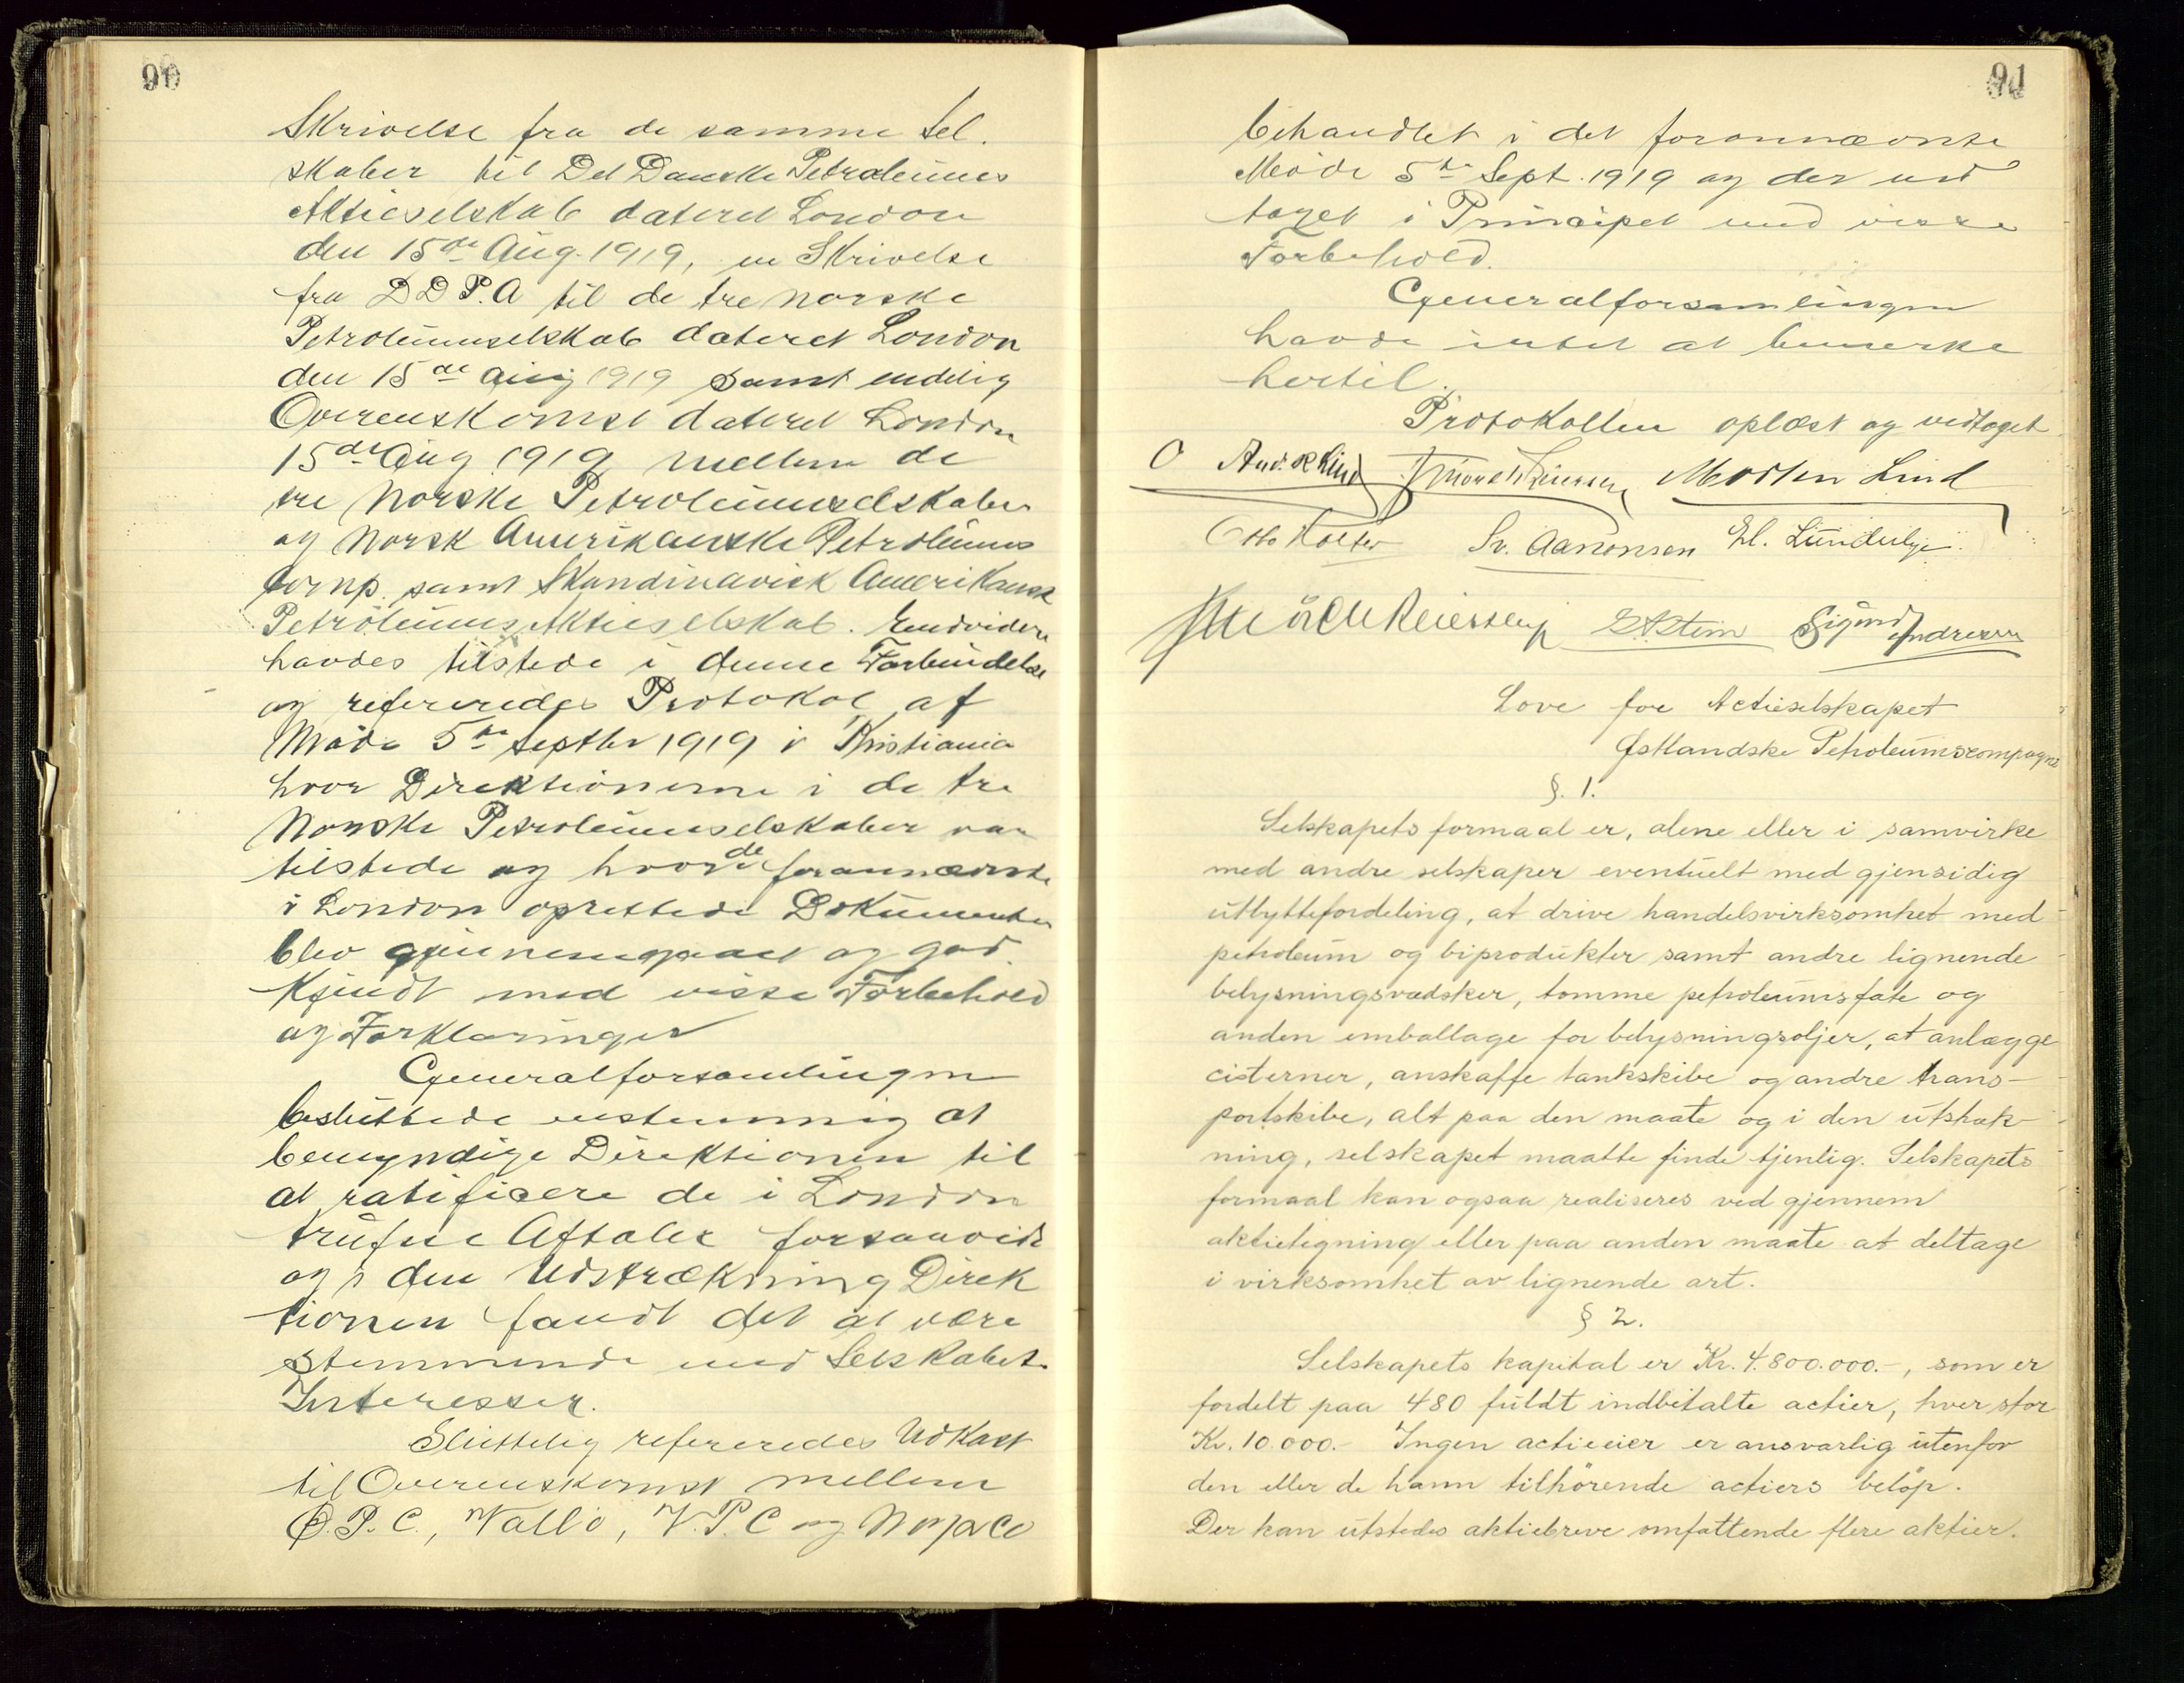 90
Skrivelse fra de samme Sel.
skaber til Det Danske Petroleums
Aktieselskab dateret London
den 15de Aug. 1919, en Skrivelse
fra D D P. A til de tre norske
Petroleumselskab dateret London
den 15de aug 1919 samt endelig
Overenskomst dateret London
15de Aug 1919 mellem de
tre Norske Petroleumselskaber
og Norsk Amerikanske Petroleums
Comp. samt Skandinavisk Amerikansk
Petroleums Aktieselskab. Endvidere
havdes tilstede i denne Forbindelse
og refereredes Protokol af
Møde 5te septbr 1919 i Kristiania
hvor Direktionerne i de tre
Norske Petroleumselskaber var
tilstede og hvor de forannævnte
i London oprettede Dokumenter
blev gjennemgaaet og god.
kjendt med visse Forbehold
og Forklaringer
Generalforsamlingen
besluttede enstemmig at
bemyndige Direktionen til
at ratificere de i London
trufne Aftaler forsaavidt
og i den Udstrækning Direk
tionen fandt det at være
stemmende med Selskabets
Interesser.
Sluttelig refereredes Udkast
til Overenskomst mellem
Ø. P. C., Vallø, V. P. C og Norpeco
91
behandlet i det forannævnte
Møde 5te Sept. 1919 og der ved
taget i Princippet med visse
Forbehold.
Generalforsamlingen
havde intet at bemerke
hertil.
Protokollen oplæst og vedtaget
And. Lind Morten Lind
Otto Sv. Aanonsen
E. Stein Sigurd Andresen
Love for Actieselskapet
Østlandske Petroleumscompagni
§. 1.
Selskapets formaal er, alene eller i samvirke
med andre selskaper eventuelt med gjensidig
utbyttefordeling, at drive handelsvirksomhet med
petroleum og biprodukter samt andre lignende
belysningsvædsker, tomme petroleumsfate og
anden emballage for belysningsoljer, at anlægge
cisterner, anskaffe tankskibe og andre trans-
portskibe, alt paa den maate og i den utstræk-
ning, selskapet maatte finde tjenlig. Selskapets
formaal kan ogsaa realiseres ved gjennem
aktietegning eller paa anden maate at deltage
i virksomhet av lignende art.
§ 2.
Selskapets kapital er Kr. 4.800.000.-, som er
fordelt paa 480 fuldt indbetalte actier, hver stor
Kr. 10.000.- Ingen actieeier er ansvarlig utenfor
den eller de ham tilhörende actiers belöp.
Der kan utstedes aktiebreve omfattende flere aktier.